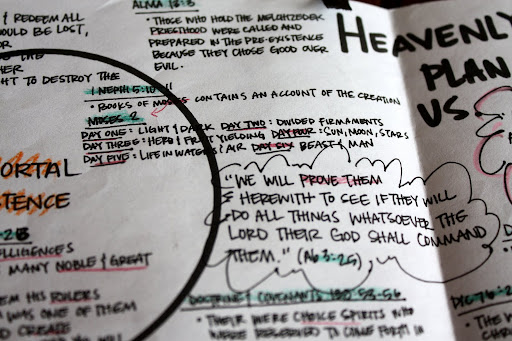 ALMA 13:3
• THOSE WHO HOLD THE MELCHIZEDEK
PRIESTHOOD WERE CALLED AND
PREPARED IN THE PRE-EXISTENCE
BECAUSE THEY CHOSE GOOD OVER
EVIL.
HEAVENLY
PLAN
US
& REDEEM ALL
OULD BE LOST,
OR
HER
HT TO DESTROY THE
1 NEPHI 5:10-11
• BOOKS OF MOSES CONTAINS AN ACCOUNT OF THE CREATION
MOSES 2
DAY ONE: LIGHT & DARK DAY TWO: DIVIDED FIRMAMENTS
DAY THREE: HERB & FRUIT YIELDING DAY FOUR: SUN, MOON, STARS
DAY FIVE: LIFE IN WATERS & AIR DAY SIX BEAST & MAN
ORTAL
STENCE
"WE WILL PROVE THEM
HEREWITH TO SEE IF THEY WILL
DO ALL THINGS WHATSOEVER THE
LORD THEIR GOD SHALL COMMAND
THEM." (
3:25)
TELLIGENCES
MANY NOBLE & GREAT
EM HIS RULERS
WAS ONE OF THEM
D CREATE
DOCTRINE & COVENANTS 138:53-56
• THEIR WERE CHOICE SPIRITS WHO
WERE RESERVED TO COME FORTH IN
D&C 76:2